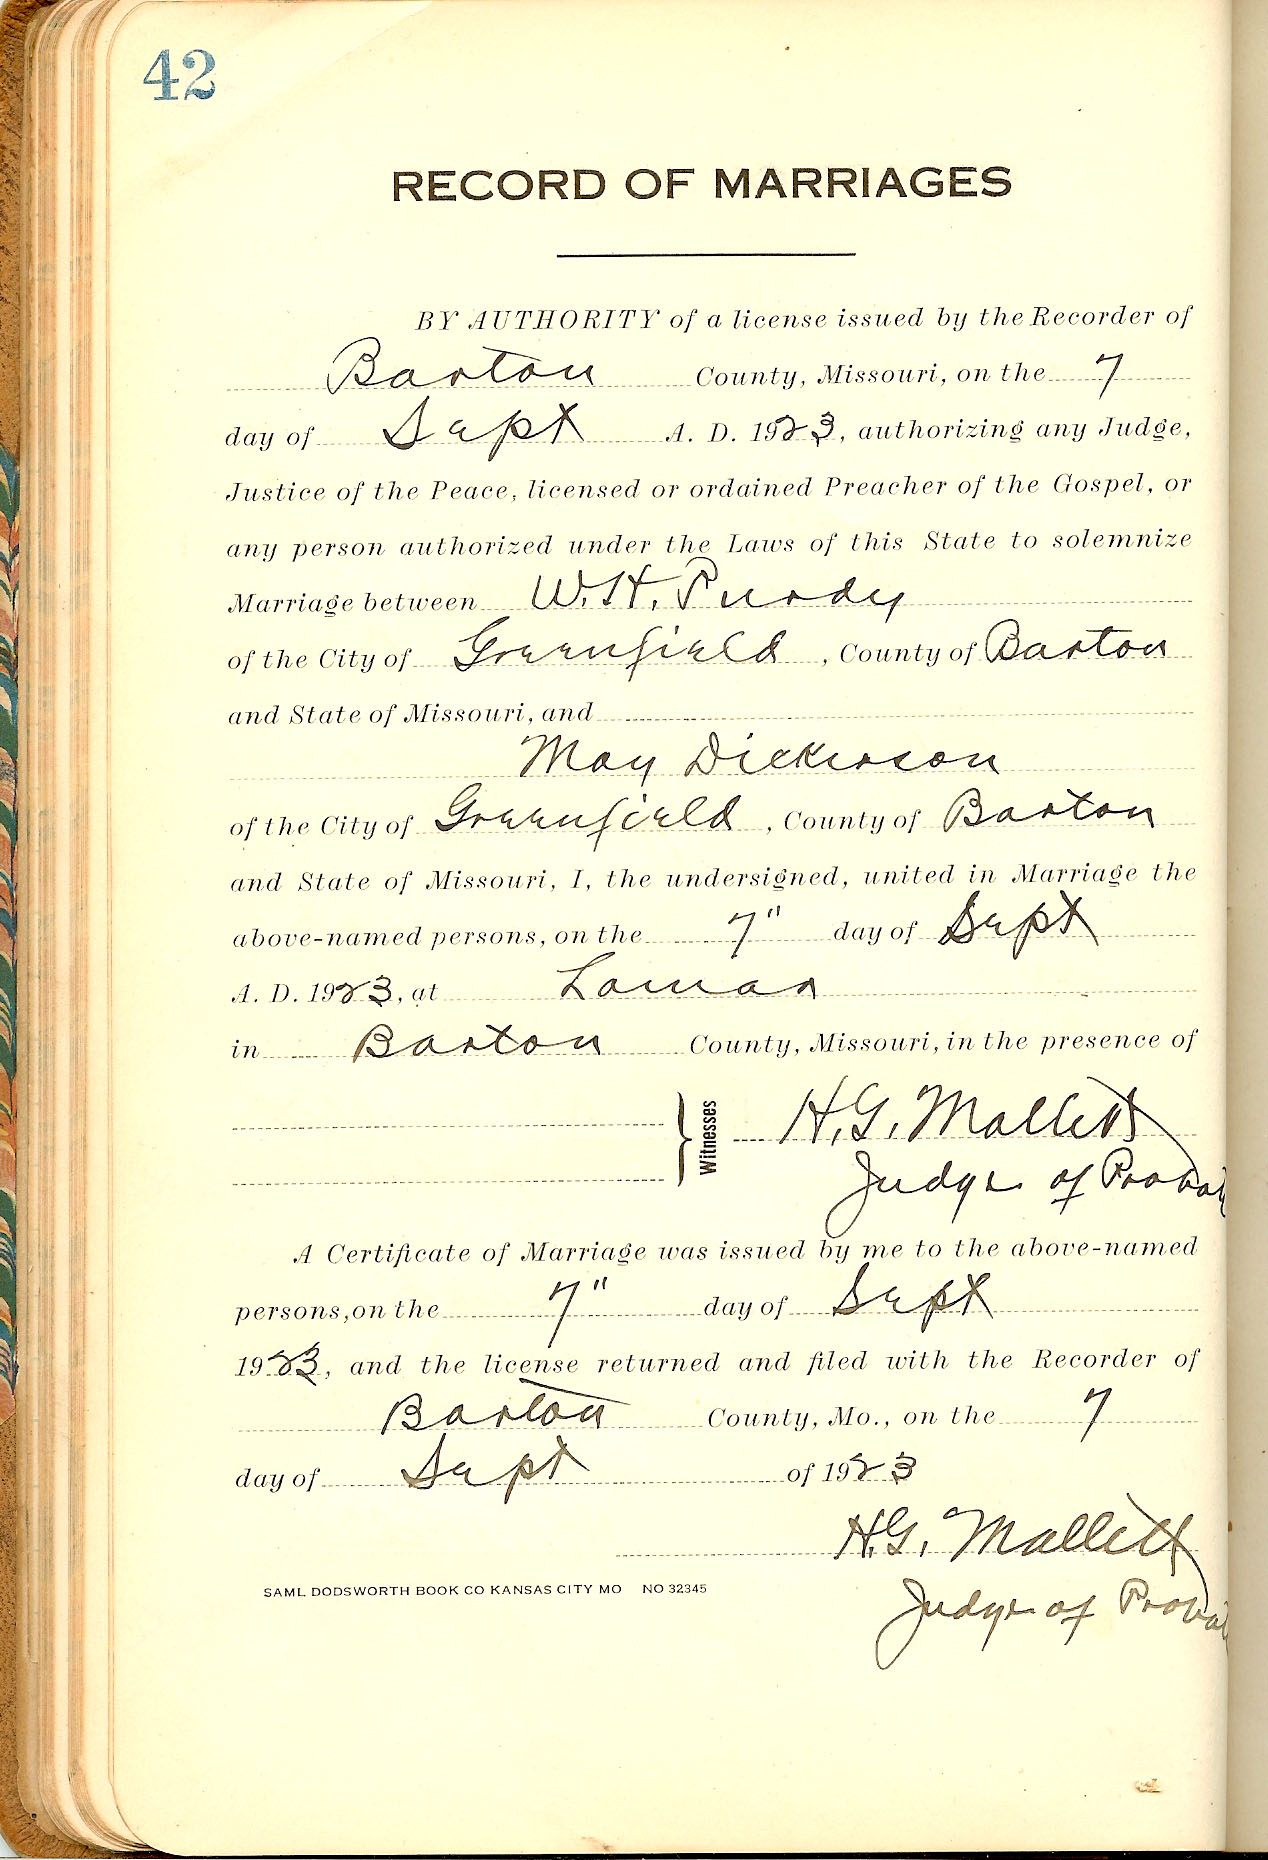 42
RECORD OF MARRIAGES
BY AUTHORITY of a license issued by the Recorder of
Barton County, Missouri, on the 7
day of Sept A. D. 1923, authorizing any Judge,
Justice of the Peace, licensed or ordained Preacher of the Gospel, or
any person authorized under the Laws of this State to solemnize
Marriage between W.H. Purdy
of the City of Greenfield, County of Barton
and State of Missouri, and
May Dickerson
of the City of Greenfield, County of Barton
and State of Missouri, I, the undersigned, united in Marriage the
above-named persons, on the 7" day of Sept
A. D. 1923, at Lamar
in Barton County, Missouri, in the presence of
Witnesses H.G. Mallett
Judge of Probat
A Certificate of Marriage was issued by me to the above-named
persons, on the 7" day of Sept
1923, and the license returned and filed with the Recorder of
Barton County, Mo., on the 7
day of Sept of 1923
H.G. Mallett
Judge of Probat
SAML DODSWORTH BOOK CO KANSAS CITY MO NO 32345